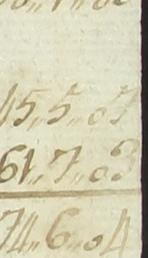 15,,5,,07
61,,7,,03
74,,6,,04